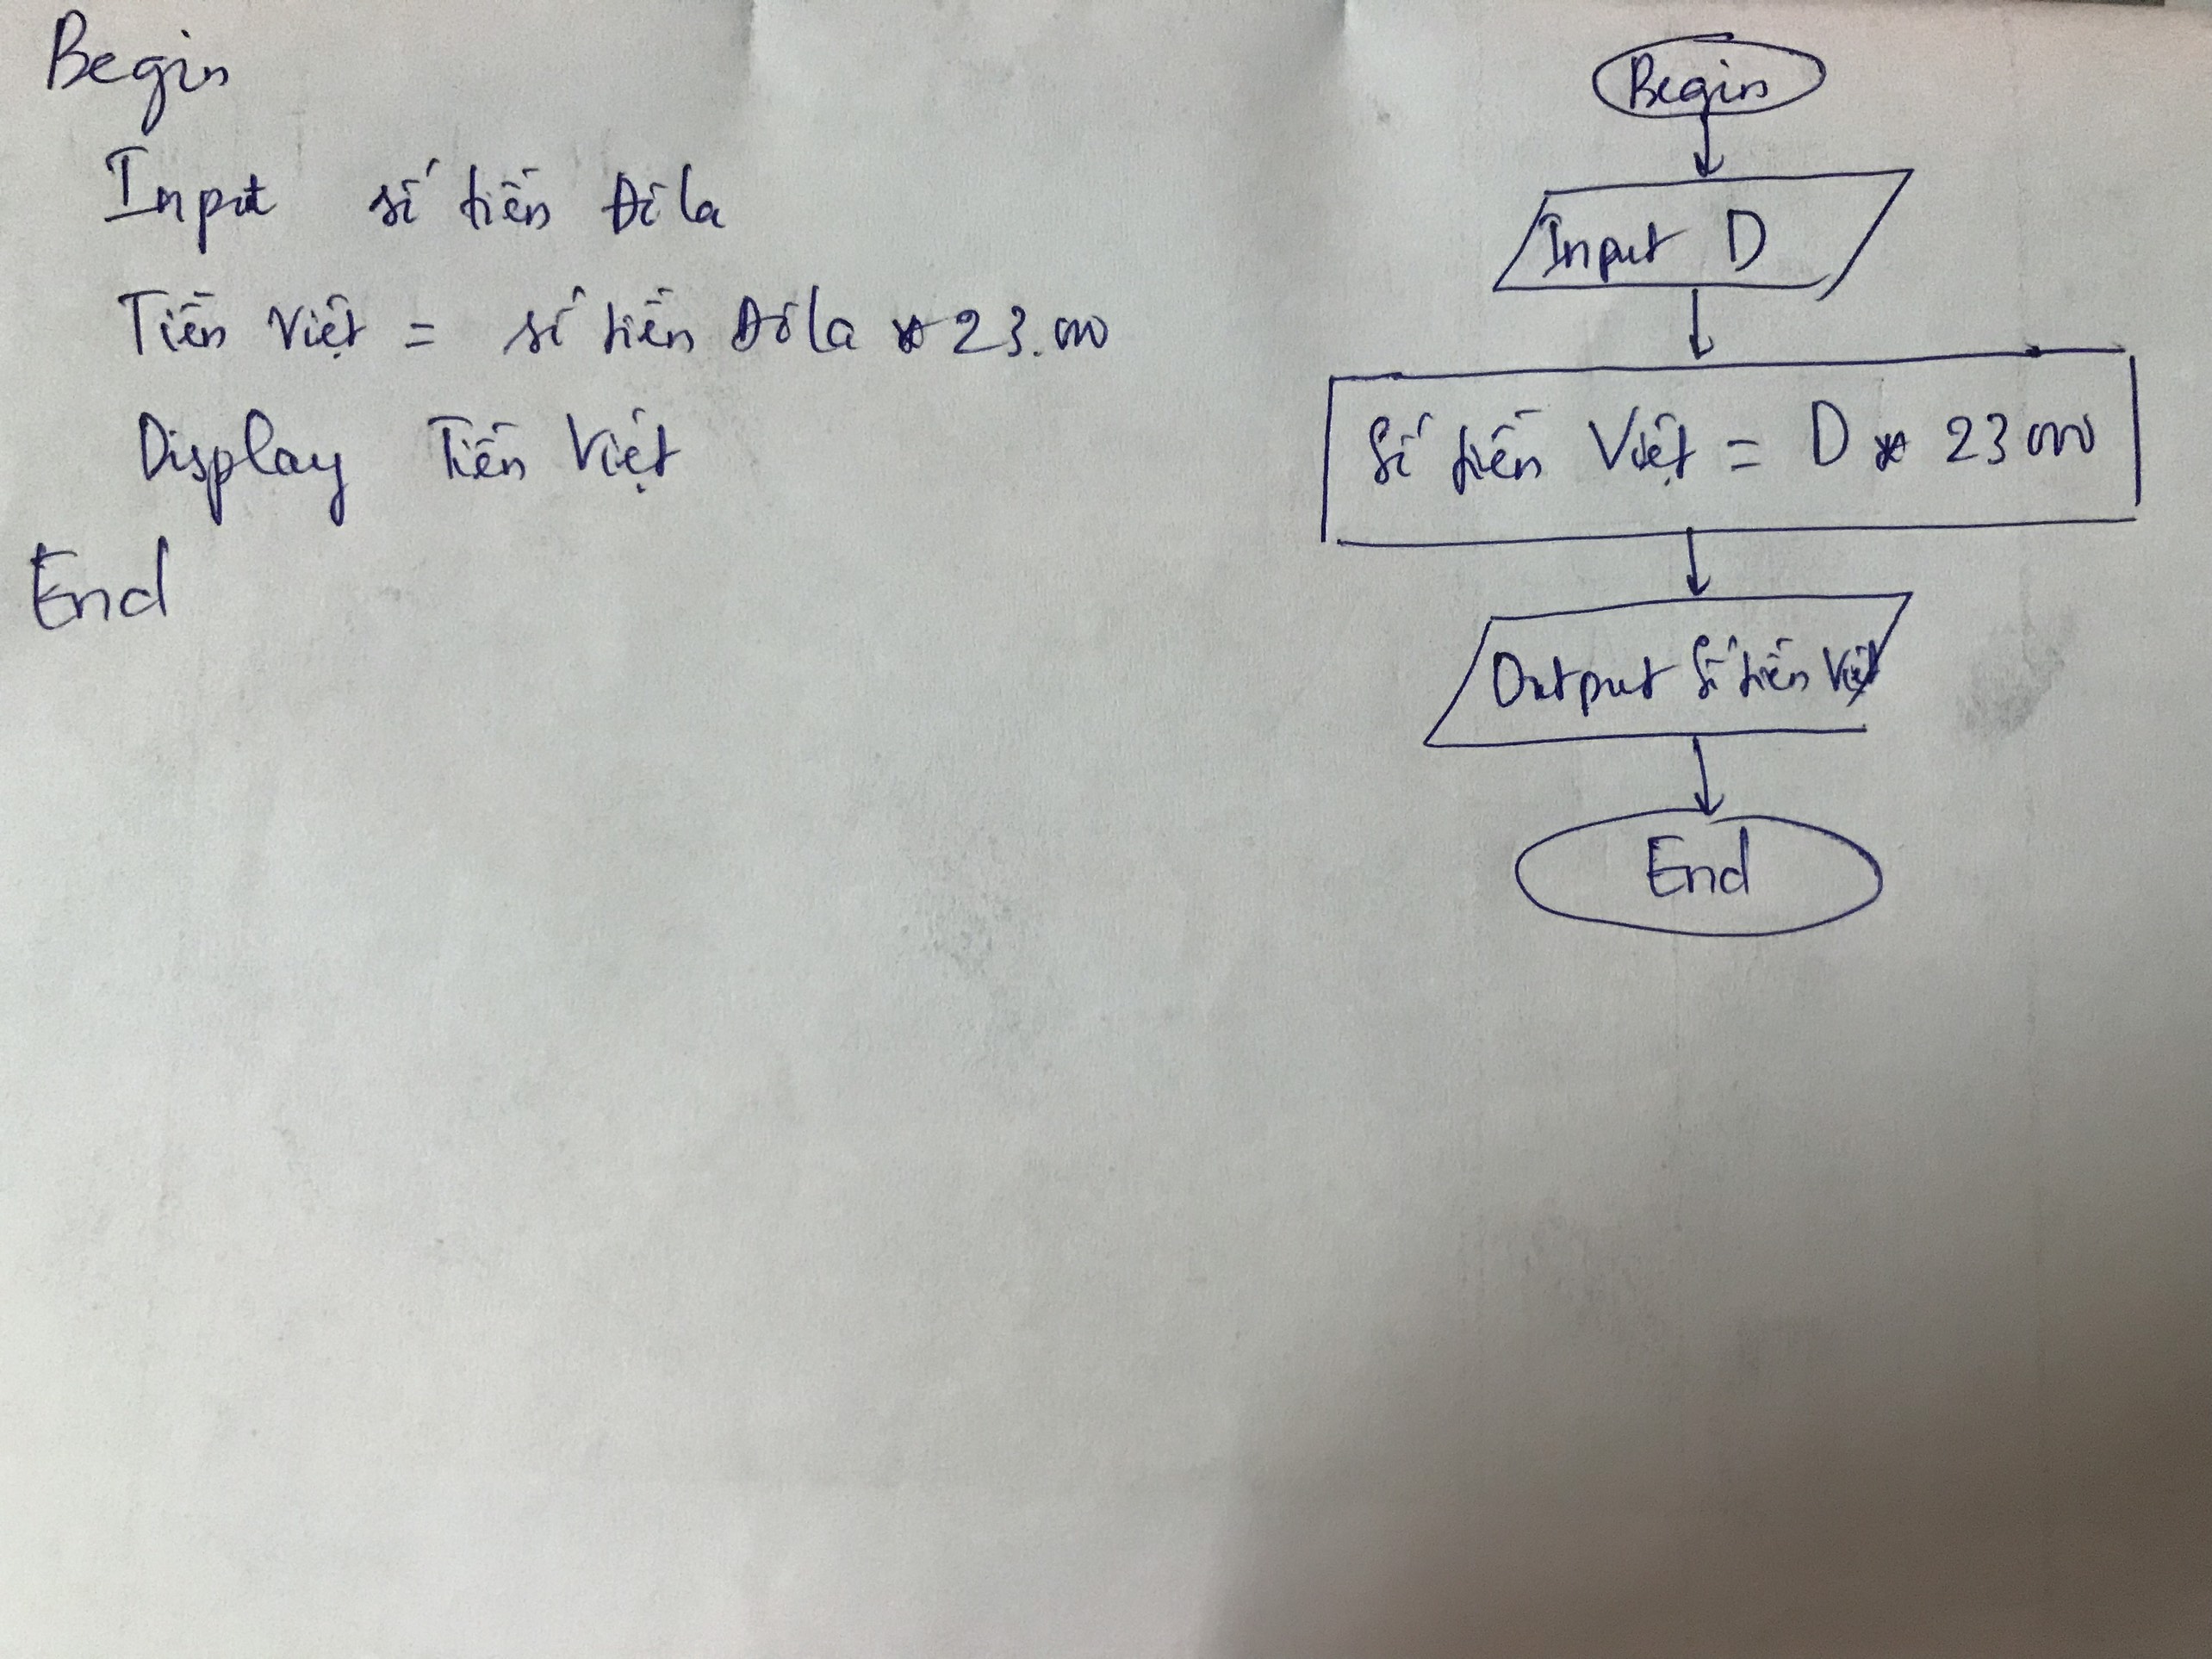 Begin
Input số tiền Đôla
Tiền Việt = số tiền Đôla * 23.000
Display Tiền Việt
End
Begin
Input D
Số tiền Việt = D * 23000
Output Số tiền Việt
End